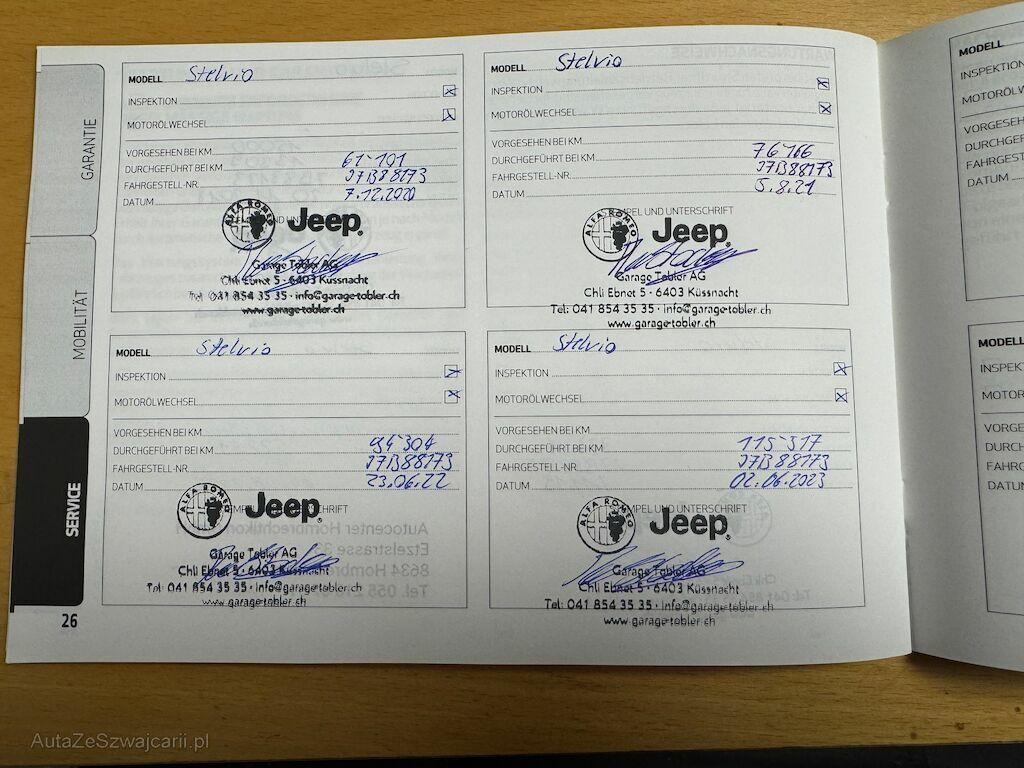 GARANTIE
MOBILITÄT
SERVICE
26
MODELL Stelvio
INSPEKTION
MOTORÖLWECHSEL
VORGESEHEN BEI KM
DURCHGEFÜHRT BEI KM 61'101
FAHRGESTELL-NR. J7B88173
DATUM 7.12.2020
ALFA ROMEO
Jeep®
Garage Tobler AG
Chli Ebnet 5 · 6403 Küssnacht
Tel: 041 854 35 35 · info@garage-tobler.ch
www.garage-tobler.ch
MODELL Stelvio
INSPEKTION
MOTORÖLWECHSEL
VORGESEHEN BEI KM
DURCHGEFÜHRT BEI KM 76'166
FAHRGESTELL-NR. J7B88173
DATUM 5.8.21
STEMPEL UND UNTERSCHRIFT
ALFA ROMEO
Jeep®
Garage Tobler AG
Chli Ebnet 5 · 6403 Küssnacht
Tel: 041 854 35 35 · info@garage-tobler.ch
www.garage-tobler.ch
MODELL Stelvio
INSPEKTION
MOTORÖLWECHSEL
VORGESEHEN BEI KM
DURCHGEFÜHRT BEI KM 94'304
FAHRGESTELL-NR. J7B88173
DATUM 23.06.22
STEMPEL UND UNTERSCHRIFT
ALFA ROMEO
Jeep®
Garage Tobler AG
Chli Ebnet 5 · 6403 Küssnacht
Tel: 041 854 35 35 · info@garage-tobler.ch
www.garage-tobler.ch
MODELL Stelvio
INSPEKTION
MOTORÖLWECHSEL
VORGESEHEN BEI KM
DURCHGEFÜHRT BEI KM 115'317
FAHRGESTELL-NR. J7B88173
DATUM 02.06.2023
STEMPEL UND UNTERSCHRIFT
ALFA ROMEO
Jeep®
Garage Tobler AG
Chli Ebnet 5 · 6403 Küssnacht
Tel: 041 854 35 35 · info@garage-tobler.ch
www.garage-tobler.ch
MODELL
INSPEKTION
MOTORÖLW
VORGESEHE
DURCHGEF
FAHRGEST
DATUM
MODELL
INSPEKT
MOTORÖ
VORGE
DURC
FAHR
DATU
AutaZeSzwajcarii.pl